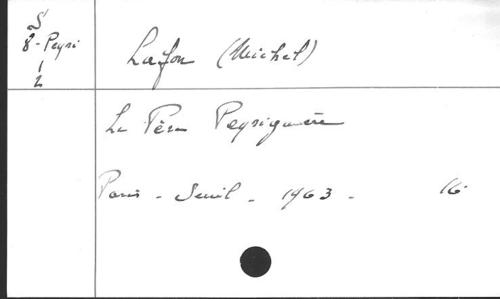 S
8-Peyri
1
2
Lafon (Michel)
Le Père Peyriguère
Paris - Seuil - 1963 - 16